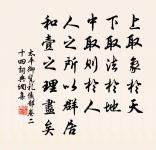 上取象於天
下取法於地
中取則於人
人之所以群居
和壹之理盡矣
太平御覽禮儀部卷二
十四詞典網集